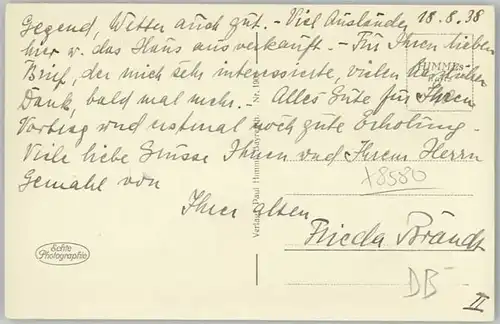 18.8.38
Gegend, Wetter auch gut. - Viel Ausländer
hier u. das Haus ausverkauft. - Für Ihren lieben
Brief, der mich sehr interessierte, vielen herzlichen
Dank, bald mal mehr. - Alles Gute für Ihren
Vortrag und erstmal noch gute Erholung.
Viele liebe Grüsse Ihnen und Ihrem Herrn
Gemahl von
Ihrer alten
Frieda Brandt
x8580
DB
II
Echte
Photographie
Verlag: Paul Himmel, Bayreuth